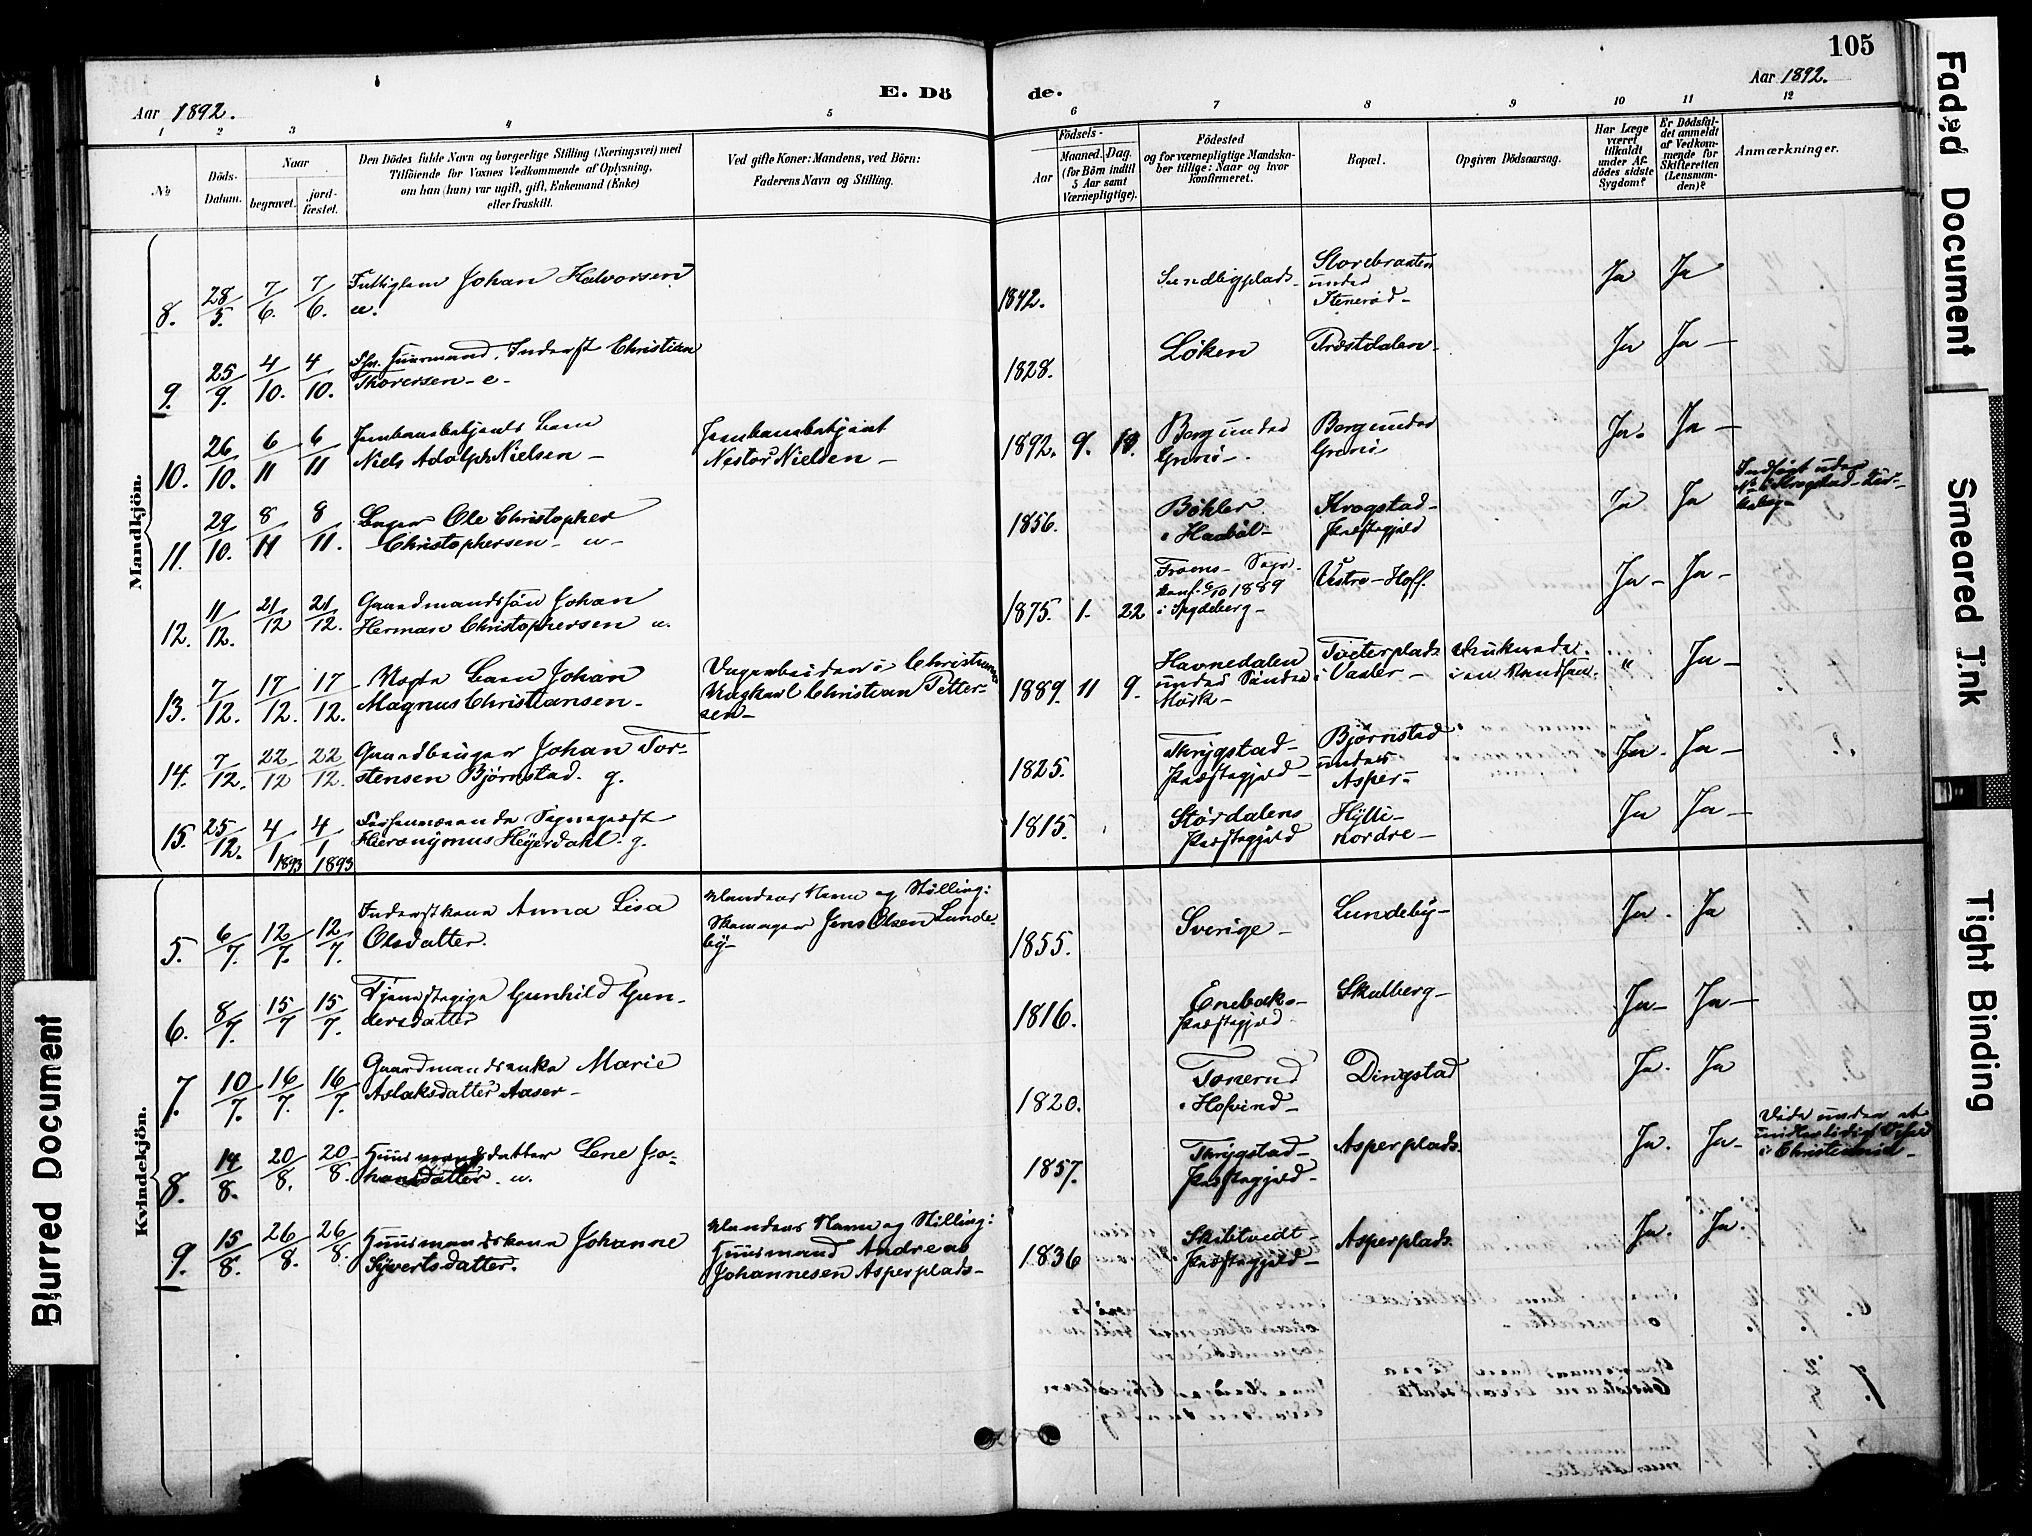 105
E. Dö de.
Aar 1892.
Aar 1892.
1 2 3 4 5 6 7 8 9 10 11 12
№
Döds-Datum.
Naar
begravet.
jord-fæstet.
Den Dödes fulde Navn og borgerlige Stilling (Næringsvei) med
Tilföiende for Voxnes Vedkommende af Oplysning,
om han (hun) var ugift, gift, Enkemand (Enke)
eller fraskilt.
Ved gifte Koner: Mandens, ved Börn:
Faderens Navn og Stilling.
Födsels-
Aar
Maaned. Dag.
(for Börn indtil
5 Aar samt
Værnepligtige).
Födested
og for værnepligtige Mandska-
ber tillige: Naar og hvor
konfirmeret.
Bopæl.
Opgiven Dödsaarsag.
Har Læge
været
tilkaldt
under Af-
dödes sidste
Sygdom?
Er Dödsfal-
det anmeldt
af Vedkom-
mende for
Skifteretten
(Lensman-
den)?
Anmærkninger.
Mandkjön.
8. 28/5. 7/6. 7/6. Fattiglem Johan Halvorsen
u.
1842. Storebraaten
under
Stenerød- Ja Ja
9. 25/9. 4/10. 4/10. Inderst Christian
Thoresen - e-
1828. Løken Ja Ja -
10. 26/10. 6/11 6/11 Jernbanebetjents Barn
Niels Adolph Nielsen -
Jernbanebetjent
Nestor Nielsen -
1892. 9. Berg under
Berg under
Ja. Ja -
11. 29/10. 8/11 8/11. Bager Ole Christopher
Christophersen - u-
1856. Bøhler
i Haabøl-
Krogstad-
Præstegjeld Ja Ja
12. 11/12. 21/12 21/12. Gaardmandssøn Johan
Herman Christophersen u.
1875. 1. 22. Konf. 6/10 1889
i Spydeberg-
Vestre-Hoff. Ja - Ja -
13. 7/12. 17/12. 17/12. Uægte Barn Johan
Magnus Christiansen -
Ungkarl Christian Petter-
sen-
1889. 11 9. Havnedalen
under Søndre
Mørk-
Tveterplads
i Vaaler - Druknede
" Ja -
14. 7/12. 22/12 22/12. Gaardbruger Johan Tor-
stensen Bjørnstad. g.
1825. Thrygstad-
Præstegjeld-
Bjørnstad
under
Asper- Ja. Ja -
15. 25/12. 4/1 1893 4/1 1893 Forhenværende Sognepræst
Hieronymus Heyerdahl. g.
1815. Størdalens
Præstegjeld
Hylli-
nordre- Ja Ja -
Kvindekjön.
5. 6/7. 12/7. 12/7. Inderstkone Anna Lisa
Olsdatter.
Mandens Navn og Stilling:
Skomager Jens Olsen Lunde-
by-
1855. Sverige - Lundeby- Ja. Ja
6. 8/7. 15/7 15/7. Tjenestepige Gunhild Gun-
dersdatter
1816. Enebaks-
Præstegjeld. Skulberg- Ja - Ja -
7. 10/7. 16/7. 16/7. Gaardmandsenke Marie
Aslaksdatter Aaser-
1820. Tonerud
i Hofvind- Dingstad Ja. Ja
8. 14/8. 20/8. 20/8. Huusmandsdatter Lene Jo-
hansdatter. u.
1857. Thrygstad-
Præstegjeld- Asperplads. Ja. Ja -
9. 15/8. 26/8. 26/8. Huusmandskone Johanne
Syvertsdatter.
Mandens Navn og Stilling:
Huusmand Andreas
Johannesen Asperplads-
1836 Skibtvedt-
Præstegjeld- Asperplads. Ja. Ja.
Faded Document
Smeared Ink
Tight Binding
Blurred Document